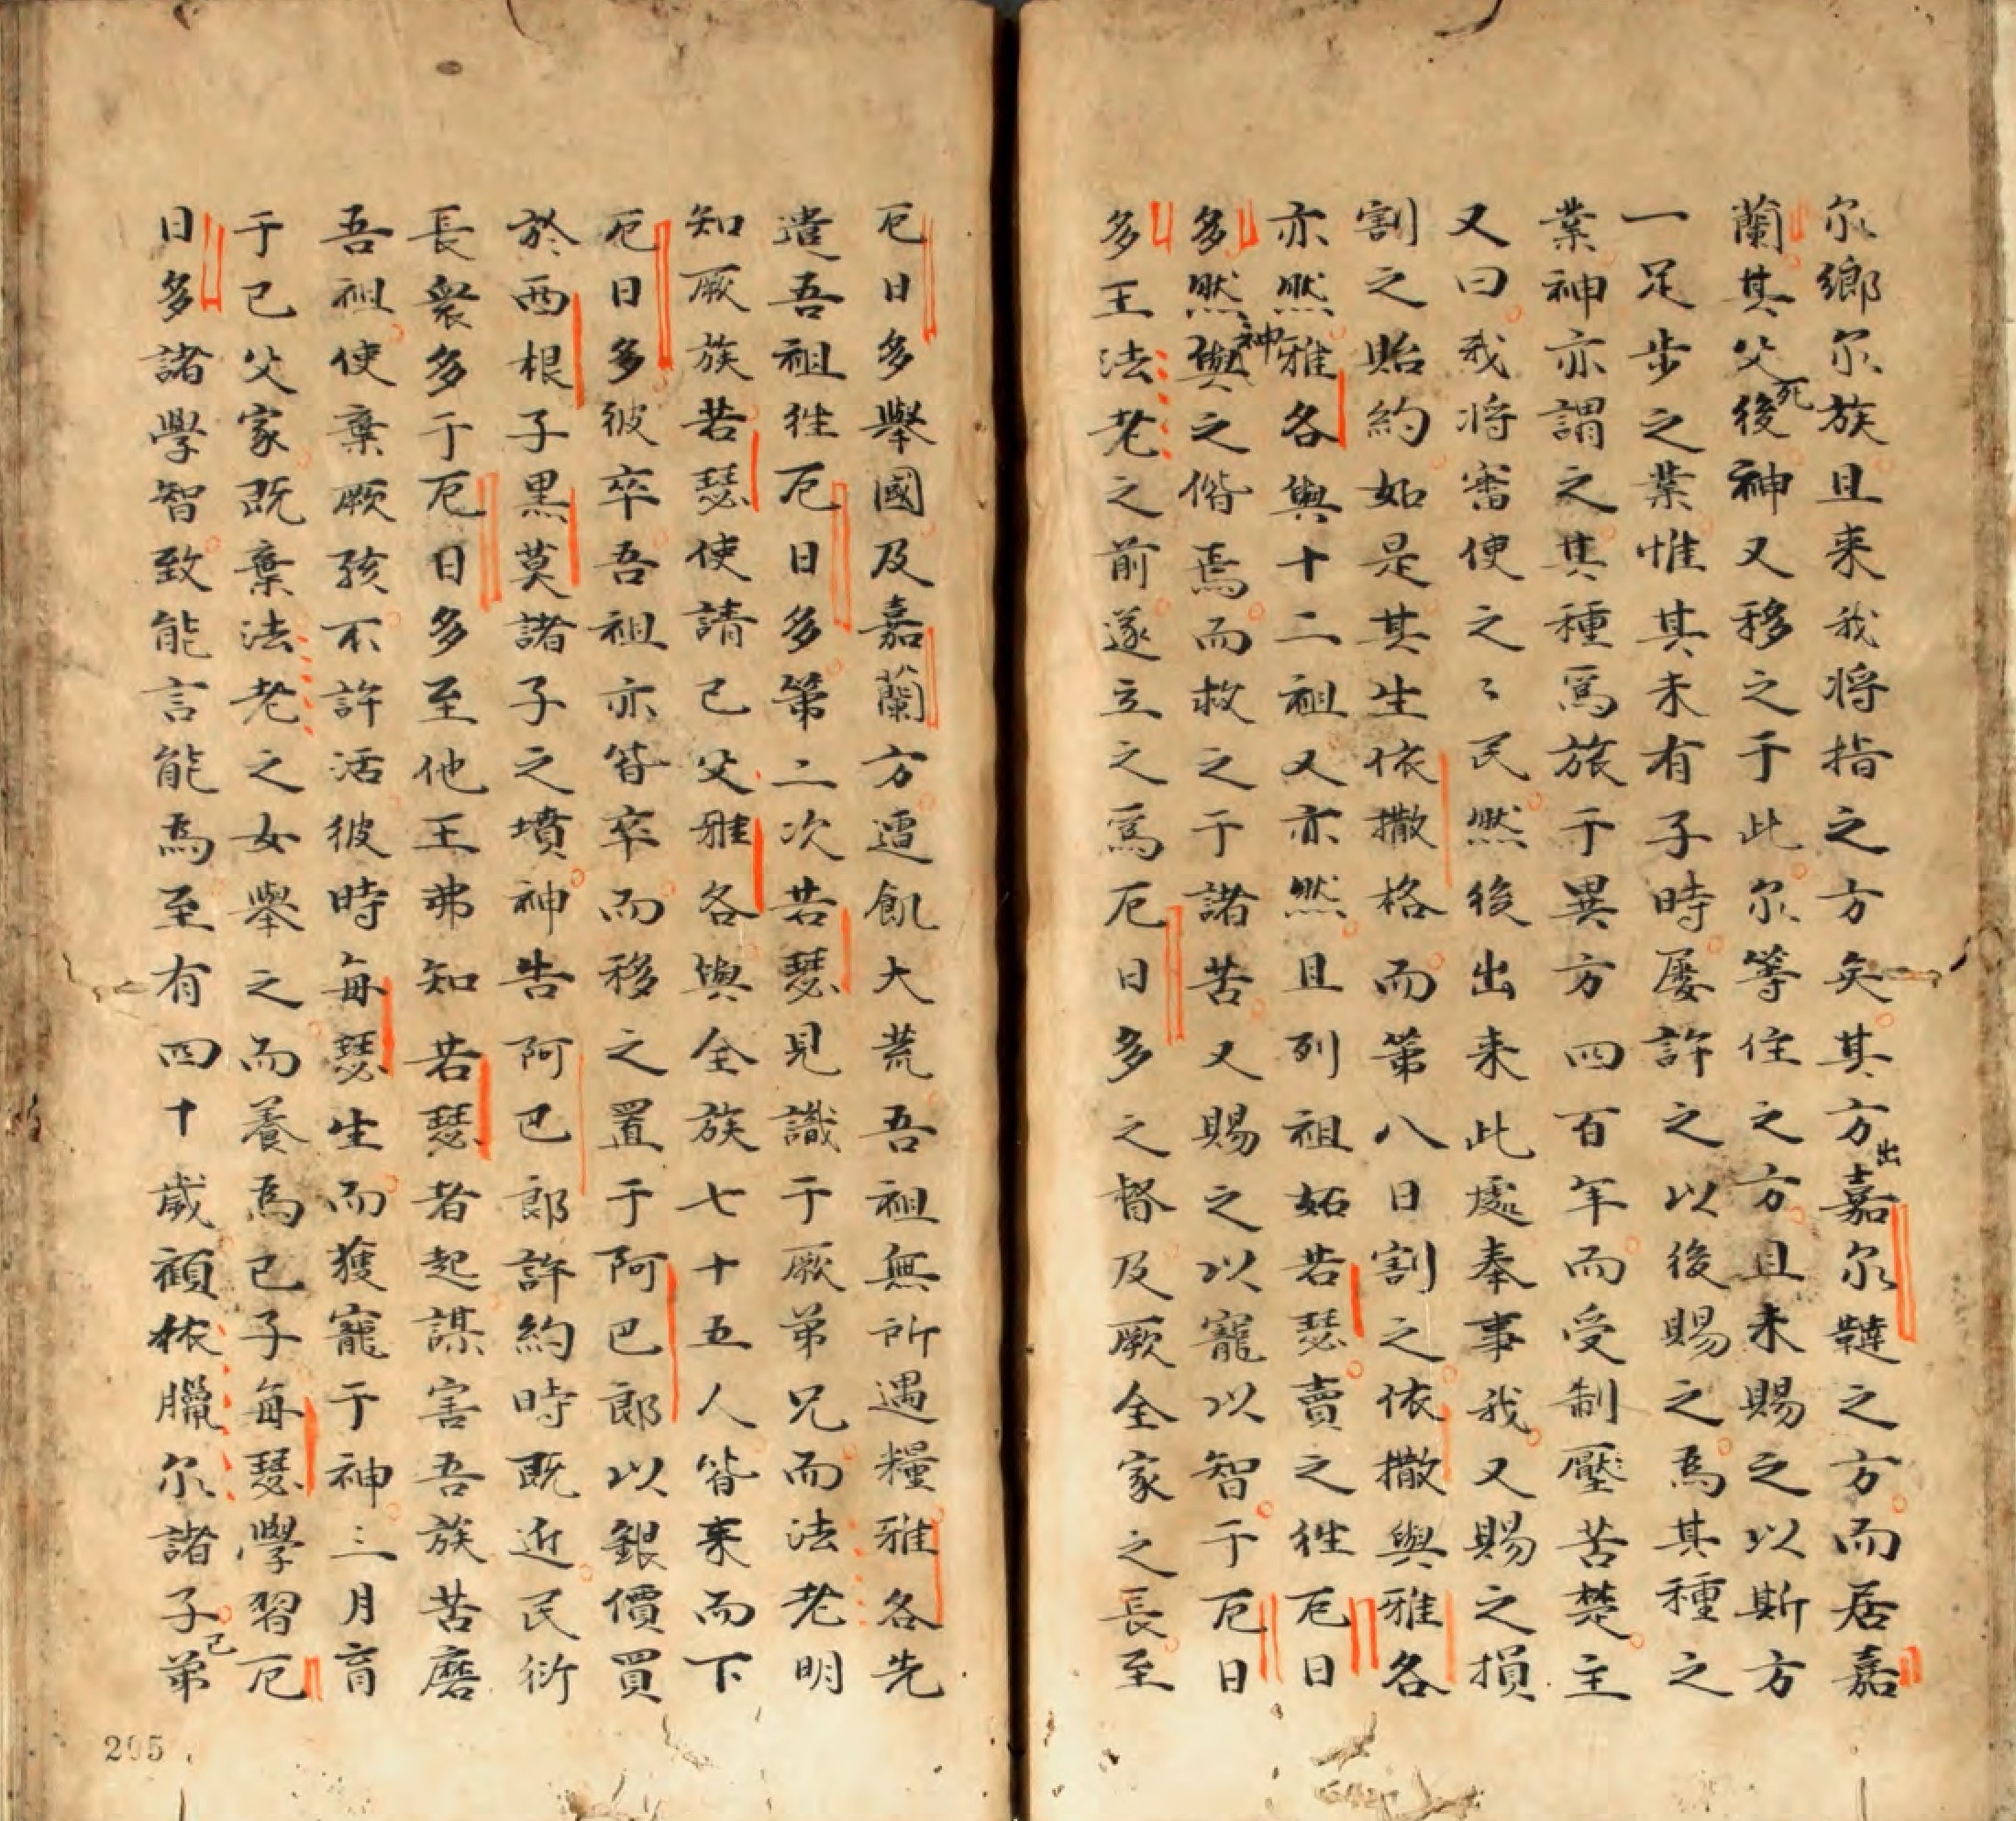 尔鄉尔族且来我将指之方矣其方出嘉尔韃之方而居嘉
蘭其父死後神又移之于此尔等住之方且未賜之以斯方
一足步之業惟其未有子時屡許之以後賜之焉其種之
業神亦謂之其種焉旅于異方四百年而受制壓苦楚主
又曰我将審使之〻民然後出来此處奉事我又賜之損
割之貽約如是其生依撒格而第八日割之依撒與雅各
亦然雅各與十二祖又亦然且列祖妬若瑟賣之徃厄日
多然神與之偕焉而救之于諸苦又賜之以寵以智于厄日
多王法老之前遂立之爲厄日多之督及厥全家之長至
厄日多舉國及嘉蘭方遭飢大荒吾祖無所遇糧雅各先
遣吾祖徃厄日多第二次若瑟見識于厥弟兄而法老明
知厥族若瑟使請己父雅各與全族七十五人皆来而下
厄日多彼卒吾祖亦皆卒而移之置于阿巴郎以銀價買
於西根子黑莫諸子之墳神告阿巴郎許約時既近民衍
長衆多于厄日多至他王弗知若瑟者起謀害吾族苦磨
吾祖使棄厥孩不許活彼時每瑟生而獲寵于神三月育
于己父家既棄法老之女舉之而養焉己子每瑟學習厄
日多諸學智致能言能焉至有四十歲顧依臘尔諸子己弟
205